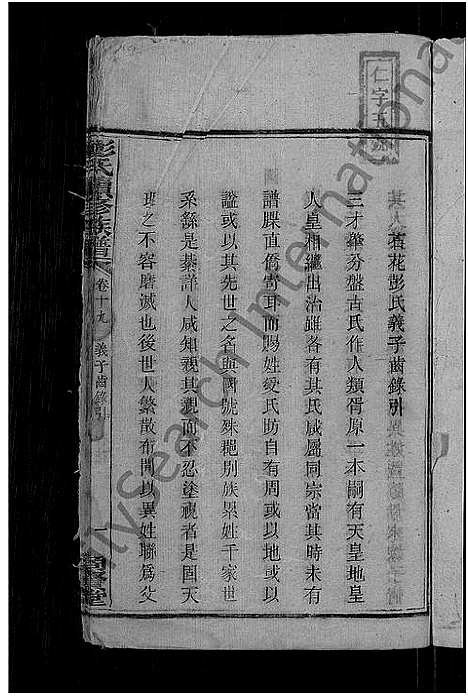 仁字五號
荷花彭氏義子齒錄引
三才肇分盤古氏作人類胥原一本嗣有天皇地皇
人皇相繼出治雖各有其氏咸屬同宗當其時未有
譜牒直僑寄耳而賜姓受氏昉自有周或以地或以
謚或以其先世之名與國號殊麄別族累姓千家世
系繇是綦詳人咸知視其親而不忍塗視者是固天
理之不容磨滅也後世人繁散布間以異姓聯為父
彭氏續修族譜
卷十九
義子齒錄引
一
MySearch International